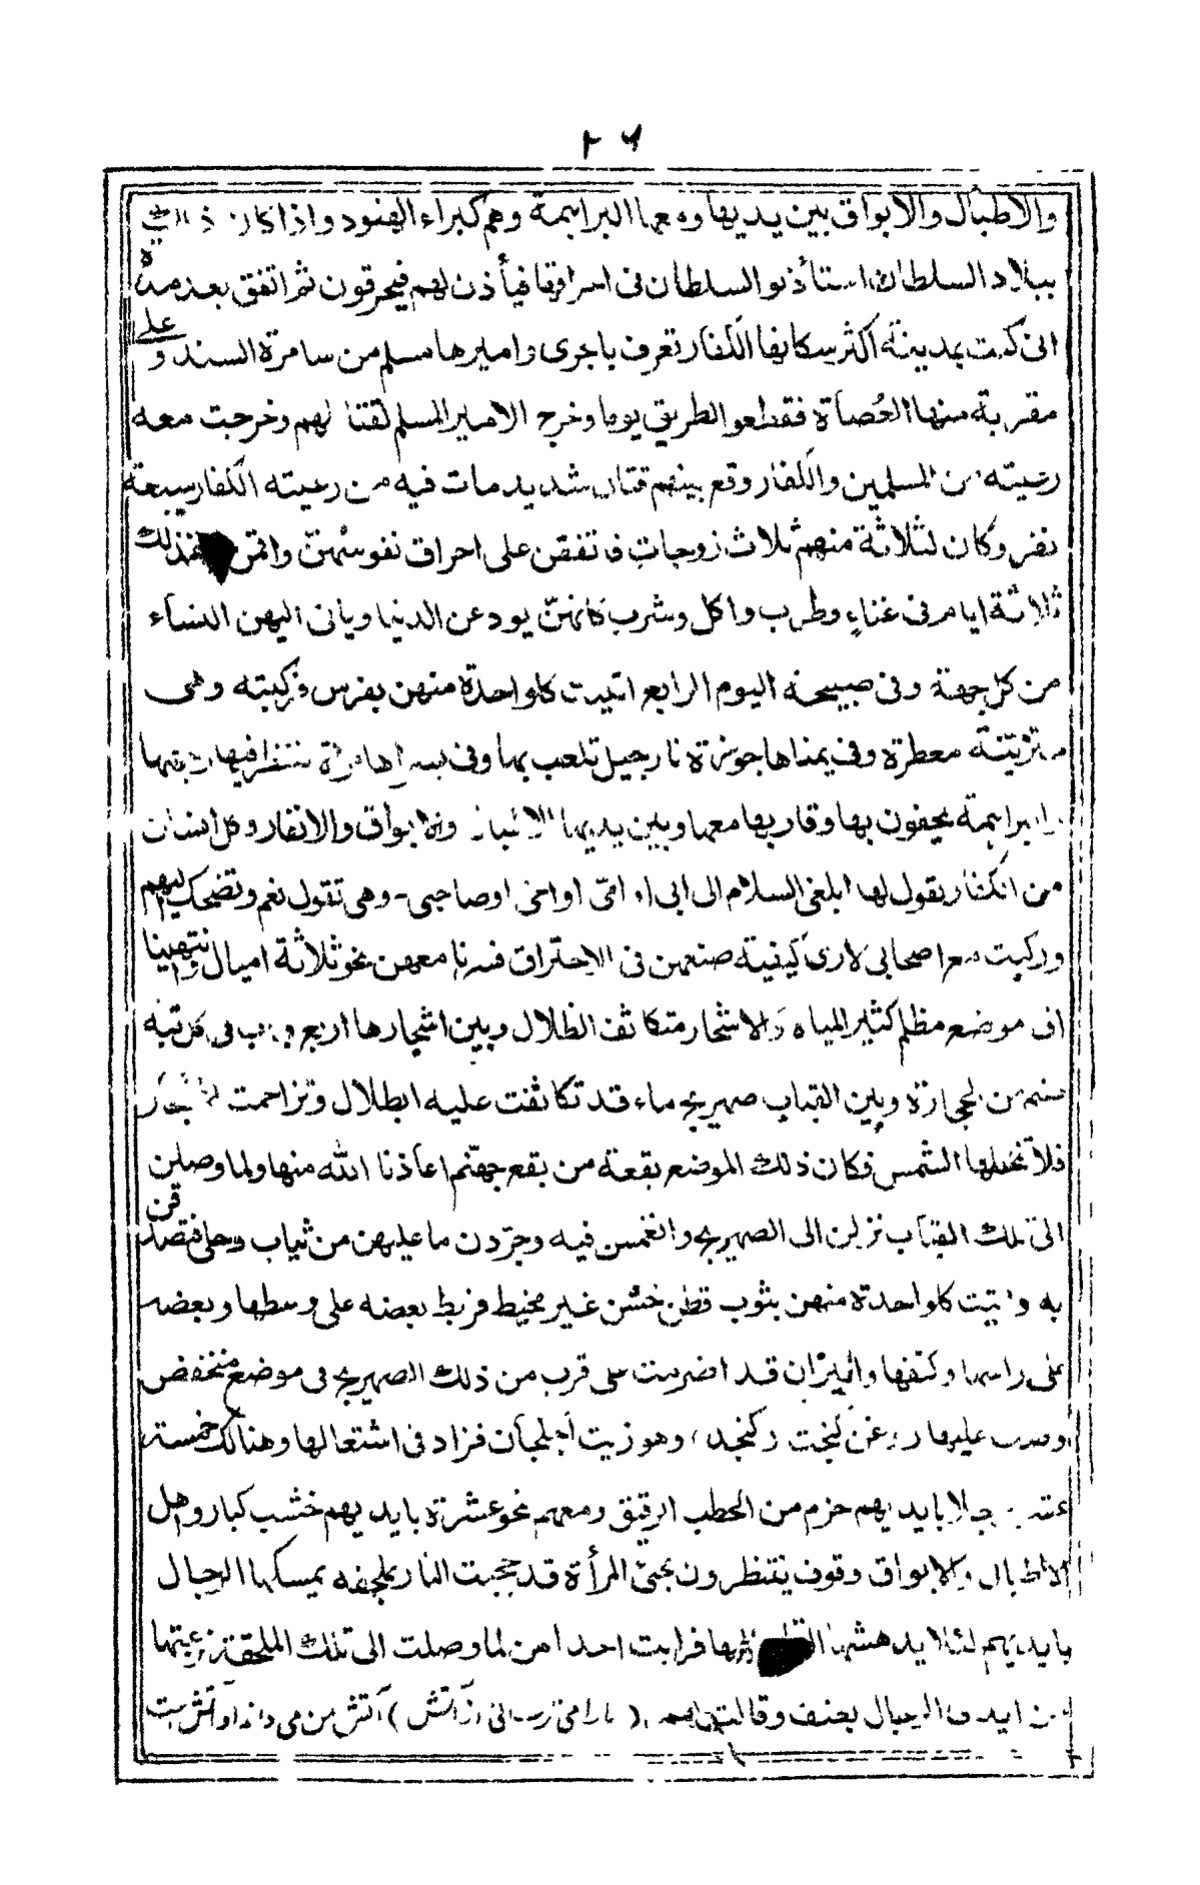 ٢٦
والاطبال والابواق بين يديها ومعها البراهمة وهم كبراء الهنود واذا كان
ببلاد السلطان استأذنوا السلطان فى احراقها فيأذن لهم فيحرقون ثم اتفق بعد مدة
انى كنت بمدينة اكثر سكانها الكفار تعرف باجرى واميرها مسلم من سامرة السند وعلى
مقربة منها العُصاة فقطعوا الطريق يوما وخرج الامير المسلم لقتالهم وخرجت معه
رعيته من المسلمين والكفار وقع بينهم قتال شديد مات فيه من رعيته الكفار سبعة
نفر وكان لثلاثة منهم ثلاث زوجات فاتفقن على احراق نفوسهن واقمن ذلك
ثلاثة ايام فى غناءٍ وطرب واكل وشرب كانهنّ يودعن الدنيا وياتى اليهن النساء
من كل جهة وفى صبيحة اليوم الرابع اتيت كلواحدة منهن بفرس فركبته وهى
متزينة معطرة وفى يمناها جوزة نارجيل تلعب بها وفى يسراها مراة تنظر فيها وجهها
والبراهمة يحفون بها وقاربها معها وبين يديها الاطبال والابواق والانفار وكل انسان
من الكفار يقول لها ابلغى السلام الى ابى او امّى او اخى او صاحبى - وهى تقول نعم وتضحك اليهم
وركبت مع اصحابى لارى كيفية صنعهن فى الاحتراق فسرنا معهن نحو ثلاثة اميال وانتهينا
الى موضع مظلم كثير المياه والاشجار متكاثف الظلال وبين اشجارها اربع قباب فى كل قبة
صنم من الحجارة وبين القباب صهريج ماء قد تكاثفت عليه الظلال وتزاحمت الاشجار
فلا تخللها الشمس فكان ذلك الموضع بقعة من بقع جهنّم اعاذنا الله منها ولما وصلن
الى تلك القباب نزلن الى الصهريج وانغمسن فيه وجرّدن ما عليهن من ثياب وحلى فتصدقن
به واتيت كلواحدة منهن بثوب قطن خشن غير مخيط فربط بعضه على وسطها وبعضه
على راسها وكتفها والنيران قد اضرمت على قرب من ذلك الصهريج فى موضع منخفض
وصب عليها روغن كنجت (كنجد) وهو زيت الجلجان فزاد فى اشتعالها وهنالك خمسة
عشر رجلا بايديهم حزم من الحطب الرقيق ومعهم نحو عشرة بايديهم خشب كبار واهل
الاطبال والابواق وقوف ينتظرون مجئ المرأة قد حجبت النار بملحفة يمسكها الرجال
بايديهم لئلا يدهشها النظر اليها فرايت احداهن لما وصلت الى تلك الملحفة نزعتها
من ايدى الرجال بعنف وقالت لهم (مارا مى ترسانى از آتش) آتش من مى دانم او آتش ست